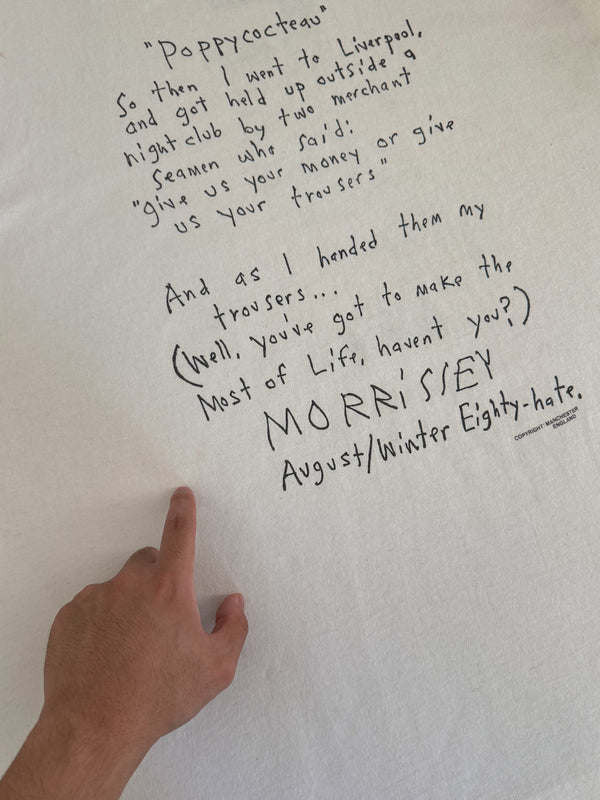 "Poppycocteau"
So then I went to Liverpool,
and got held up outside a
night club by two merchant
Seamen who said:
"give us your money or give
us your trousers"
And as I handed them my
trousers...
(Well, you've got to make the
Most of Life, havent you?)
MORRiSSEY
August/Winter Eighty-hate.
COPYRIGHT: MANCHESTER
ENGLAND